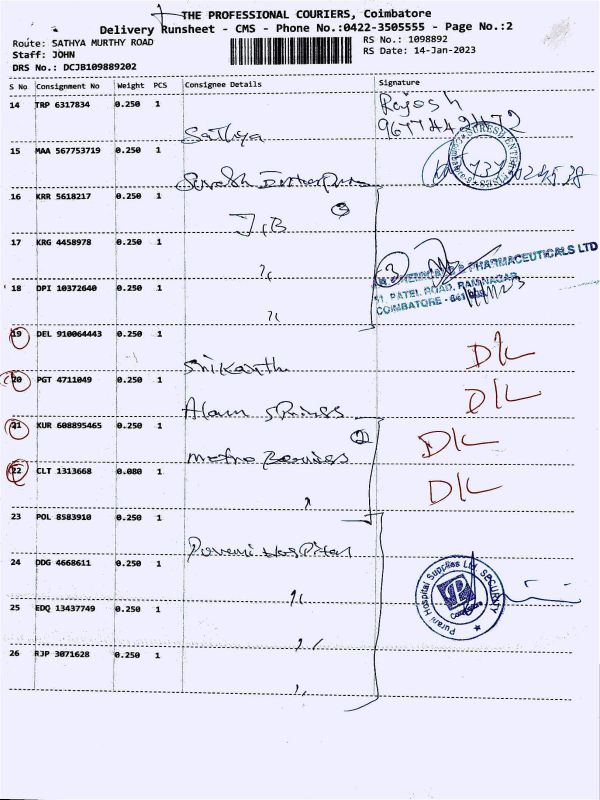 THE PROFESSIONAL COURIERS, Coimbatore
Delivery Runsheet - CMS - Phone No.:0422-3505555 - Page No.:2
Route: SATHYA MURTHY ROAD
Staff: JOHN
DRS No.: DCJB109889202
RS No.: 1098892
RS Date: 14-Jan-2023
S No Consignment No Weight PCS Consignee Details Signature
14 TRP 6317834 0.250 1 Sathya Rajesh
15 MAA 567753719 0.250 1
16 KRR 5618217 0.250 1 JCB
17 KRG 4458978 0.250 1 "
18 DPI 10372640 0.250 1 "
3
PHARMACEUTICALS LTD
51, PATEL ROAD, RAMNAGAR
COIMBATORE - 641 009.
19 DEL 910064443 0.250 1 Srikanth D/L
20 PGT 4711049 0.250 1 Alam D/L
21 KUR 608895465 0.250 1 Metro D/L
2
22 CLT 1313668 0.080 1 " D/L
23 POL 8583910 0.250 1 Purani Hospital
24 DDG 4668611 0.250 1 "
25 EDQ 13437749 0.250 1 "
26 RJP 3071628 0.250 1 "
Purani Hospital Supplies Ltd. SECURITY
Coimbatore